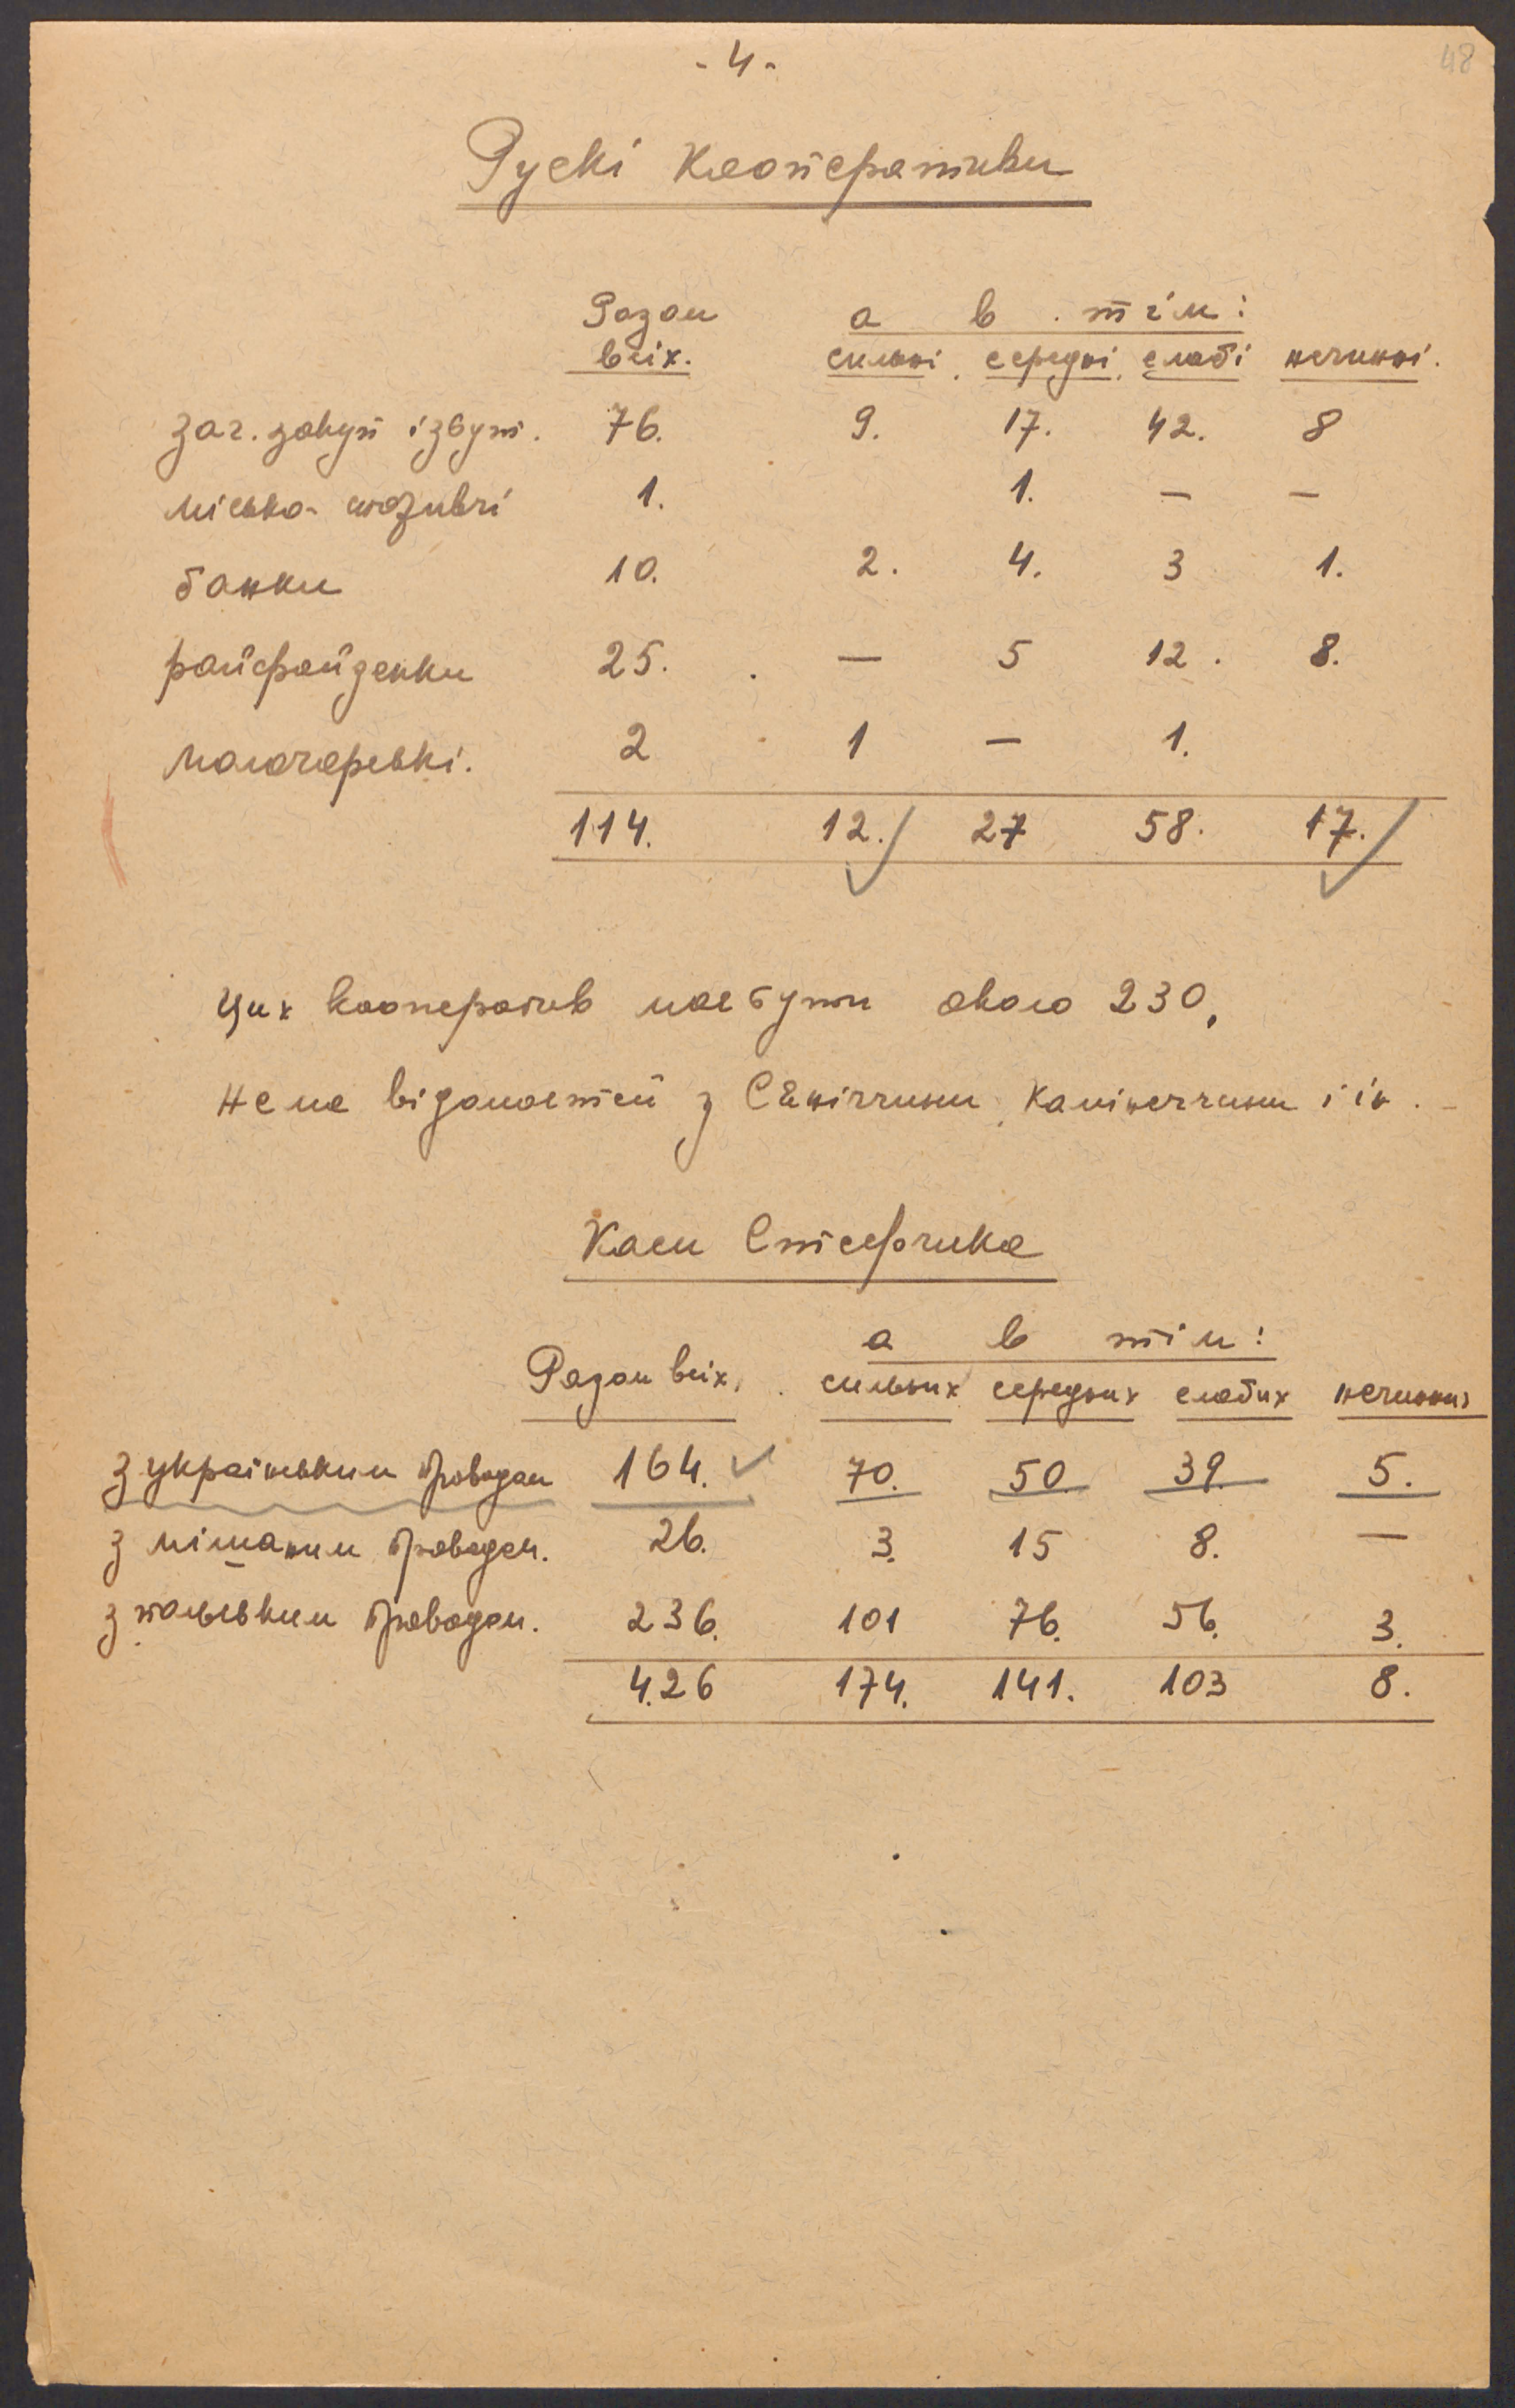 - 4 -
48
Рускі Кооперативи
Разом а в тім:
всіх. сильні, середні, слабі нечинні.
заг. закуп і збут. 76. 9. 17. 42. 8
місько-споживчі 1. 1. — —
банки 10. 2. 4. 3 1.
райфайзенки 25. — 5 12. 8.
молочарські. 2 1 — 1.
114. 12. 27 58. 17.
Цих кооператив має бути около 230,
Нема відомостей з Сяніччини, Камінеччини і ін.
Каси Стефчика
а в тім:
Разом всіх, сильних середних слабих нечинних
з українським проводом 164. 70. 50. 39. 5.
з мішаним проводом. 26. 3. 15 8. —
з польським проводом. 236. 101 76. 56. 3.
426 174. 141. 103 8.